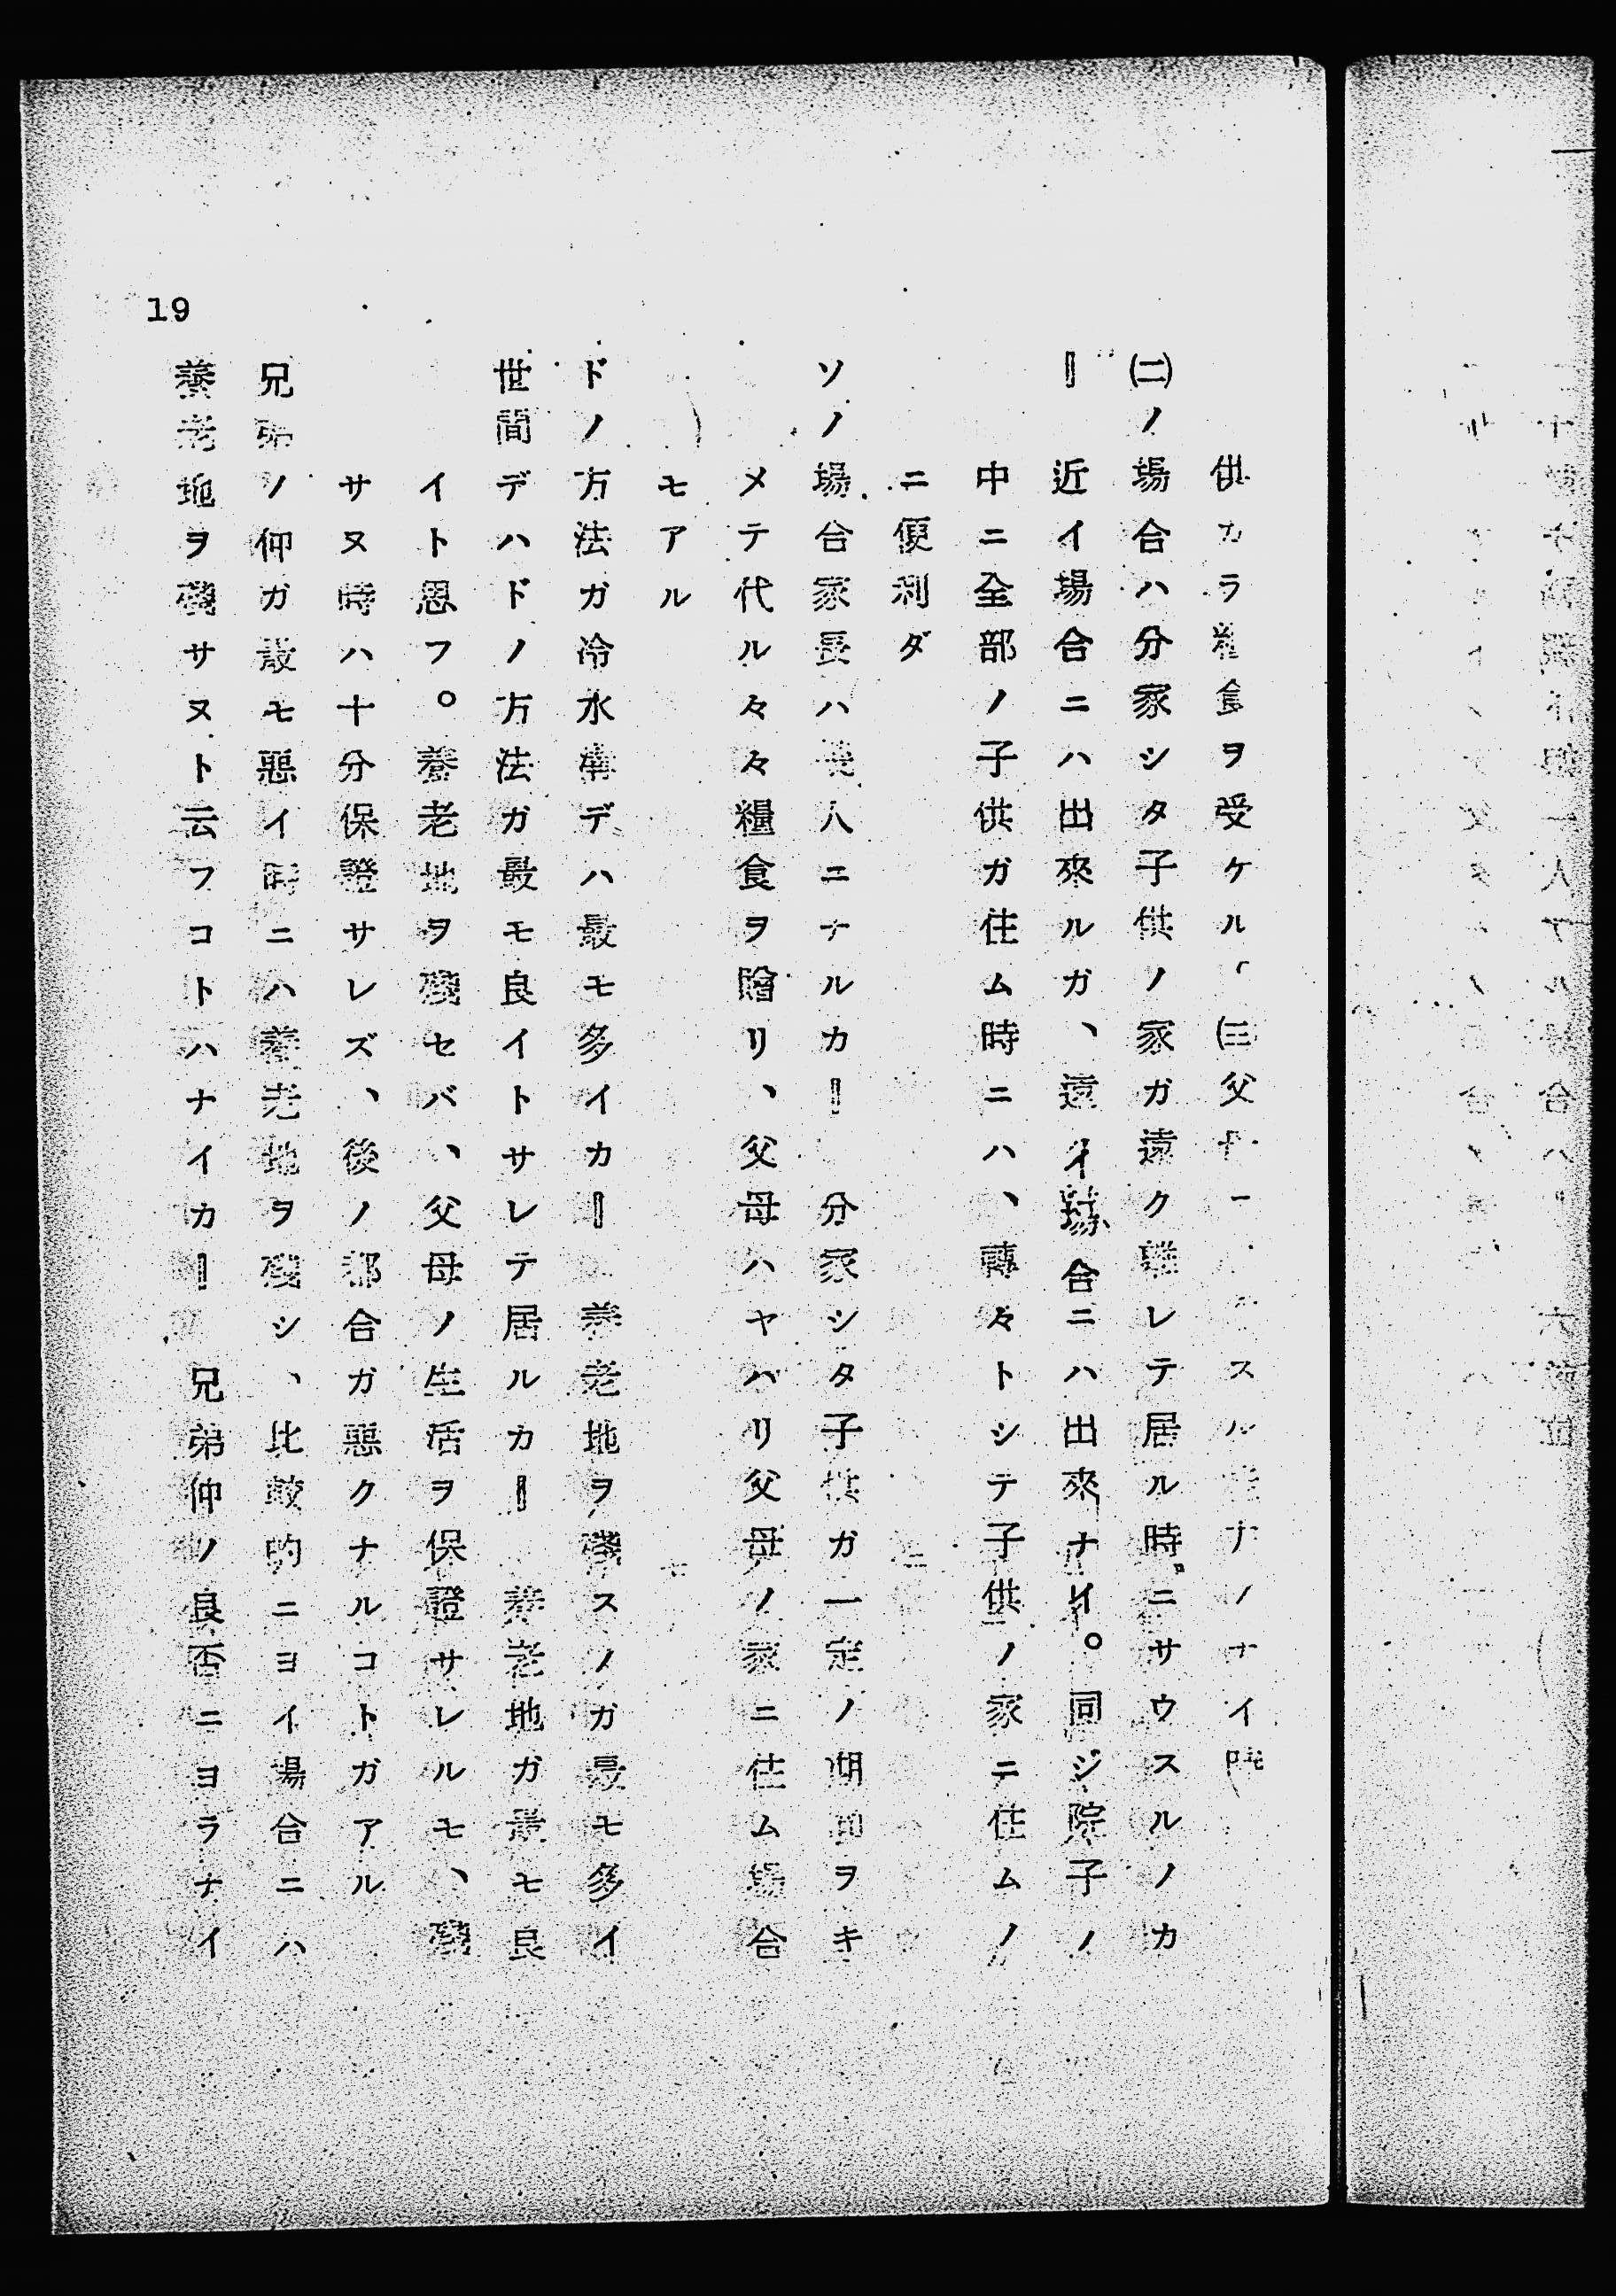 供カラ糧食ヲ受ケル、㈢父 スル ナノナイ時
㈡ノ場合ハ分家シタ子供ノ家ガ遠ク離レテ居ル時ニサウスルノカ
‖近イ場合ニハ出來ルガ、遠イ場合ニハ出來ナイ。同ジ院子ノ
中ニ全部ノ子供ガ住ム時ニハ、轉々トシテ子供ノ家ニ住ムノ
ニ便利ダ
ソノ場合家長ハ 人ニナルカ‖ 分家シタ子供ガ一定ノ期間ヲキ
メテ代ル々々糧食ヲ贍リ、父母ハヤハリ父母ノ家ニ住ム場合
モアル
ドノ方法ガ冷水溝デハ最モ多イカ‖ 養老地ヲ殘スノガ最モ多イ
世間デハドノ方法ガ最モ良イトサレテ居ルカ‖ 養老地ガ最モ良
イト思フ。養老地ヲ殘セバ、父母ノ生活ヲ保證サレルモ、殘
サヌ時ハ十分保證サレズ、後ノ都合ガ惡クナルコトガアル
兄弟ノ仲ガ最モ惡イ時ニハ養老地ヲ殘シ、比較的ニヨイ場合ニハ
養老地ヲ殘サヌト云フコトハナイカ‖ 兄弟仲ノ良否ニヨラナイ
19